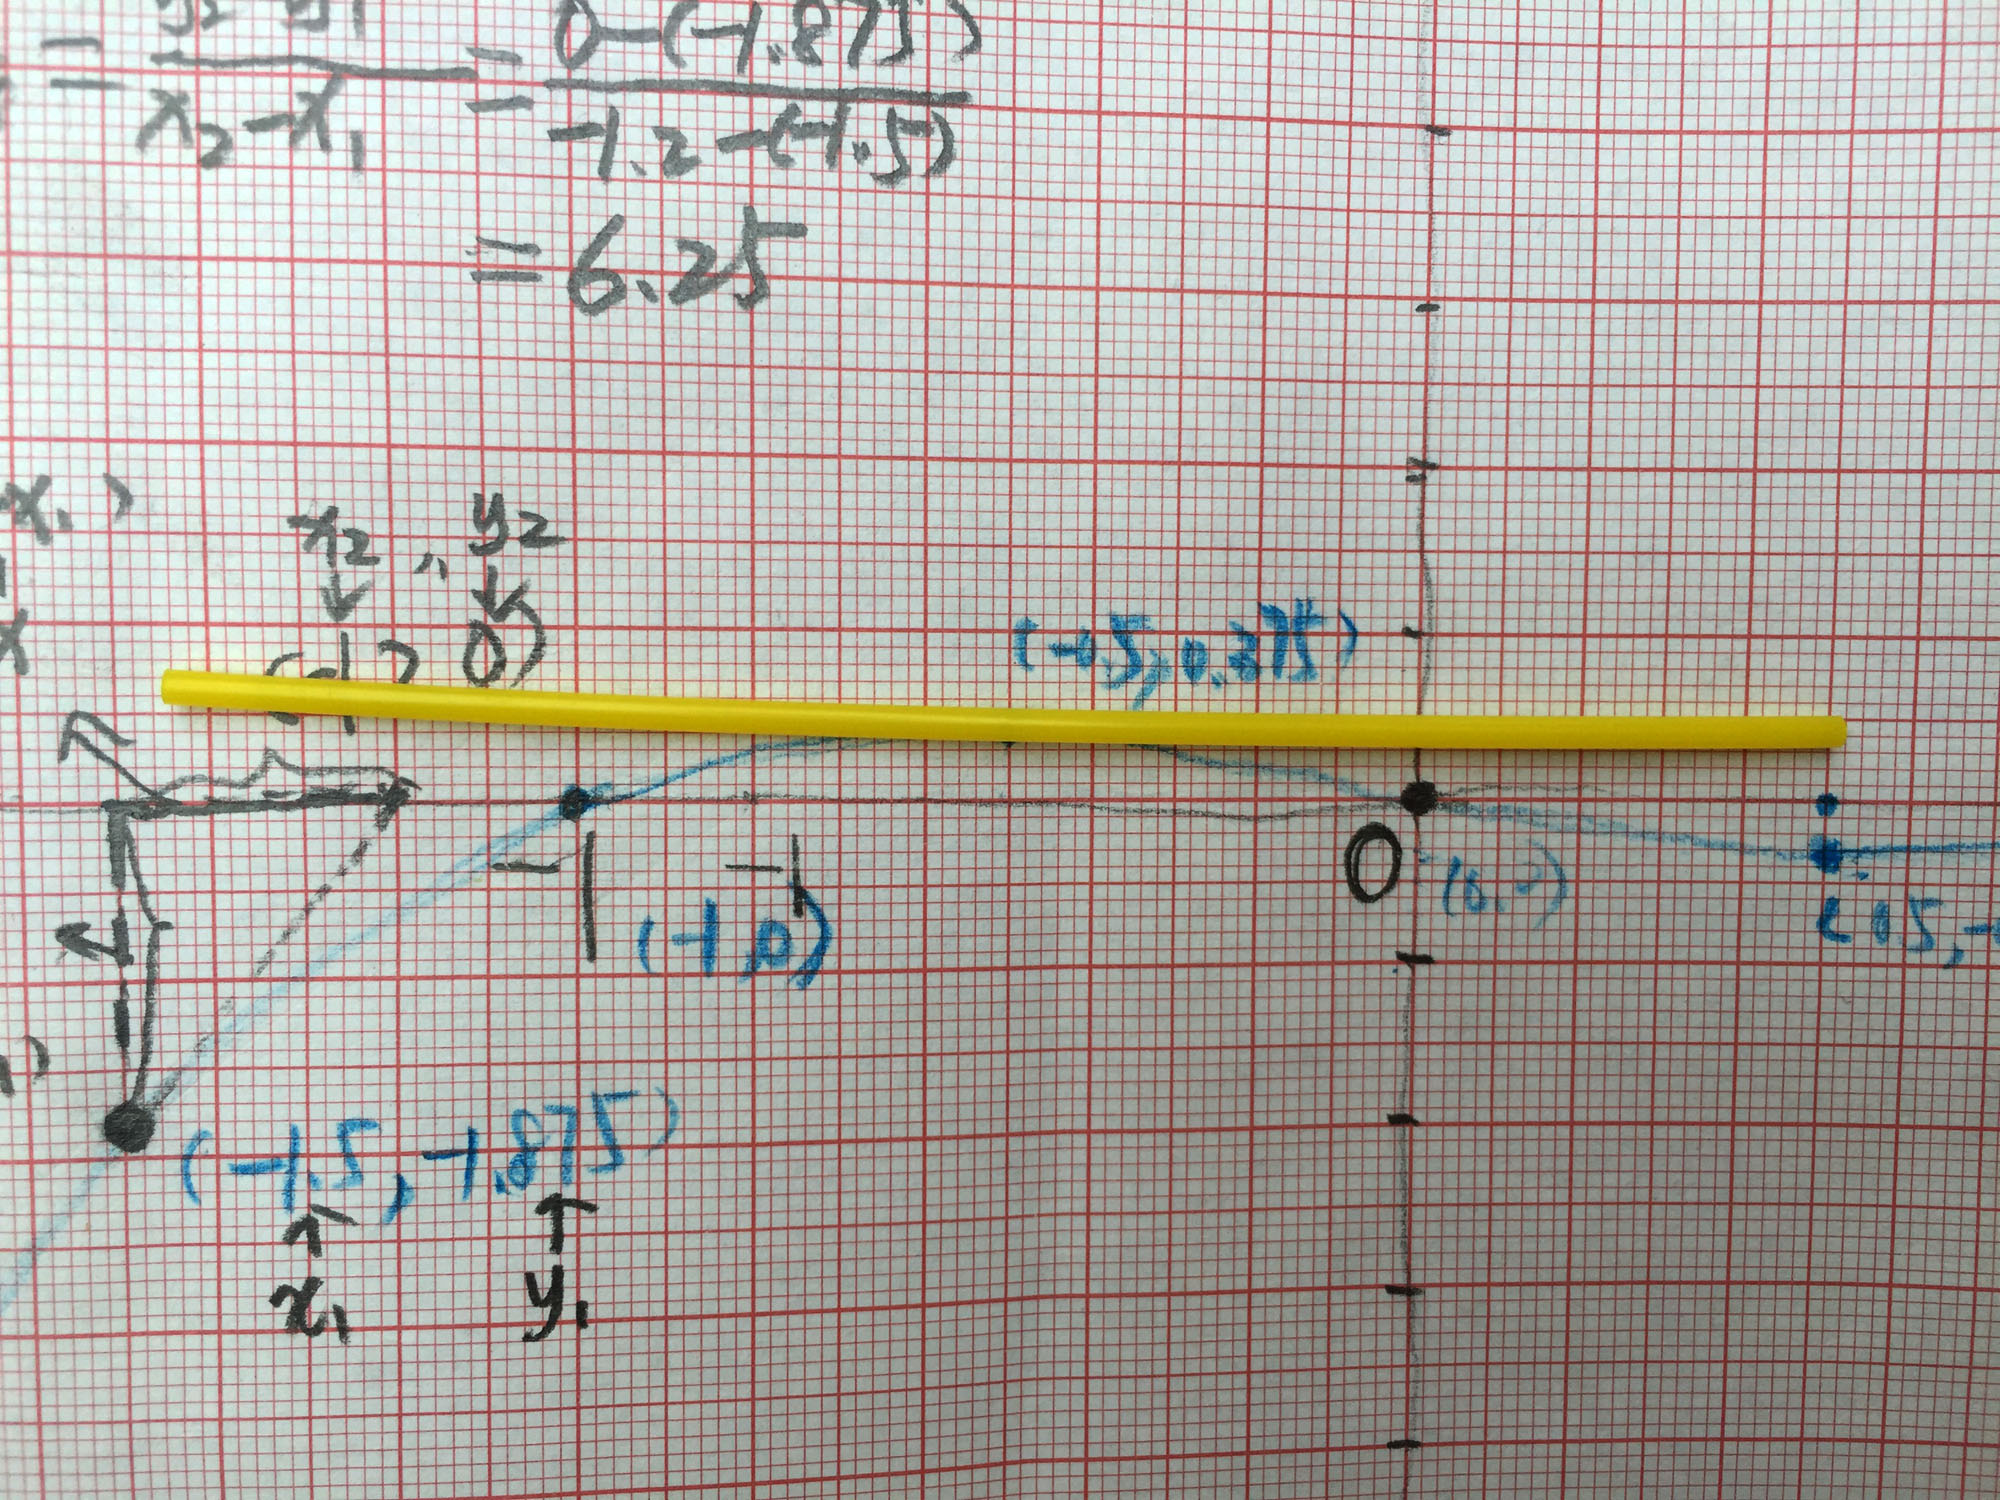 = y₂-y₁ / x₂-x₁ = 0-(-1.875) / -1.2-(-1.5)
= 6.25
x₁)
x₂ , y₂
x
0)
(-0.5, 0.375)
-1
-1
0
(-1,0)
(0.5, -
(-1.5, -1.875)
x₁ y₁